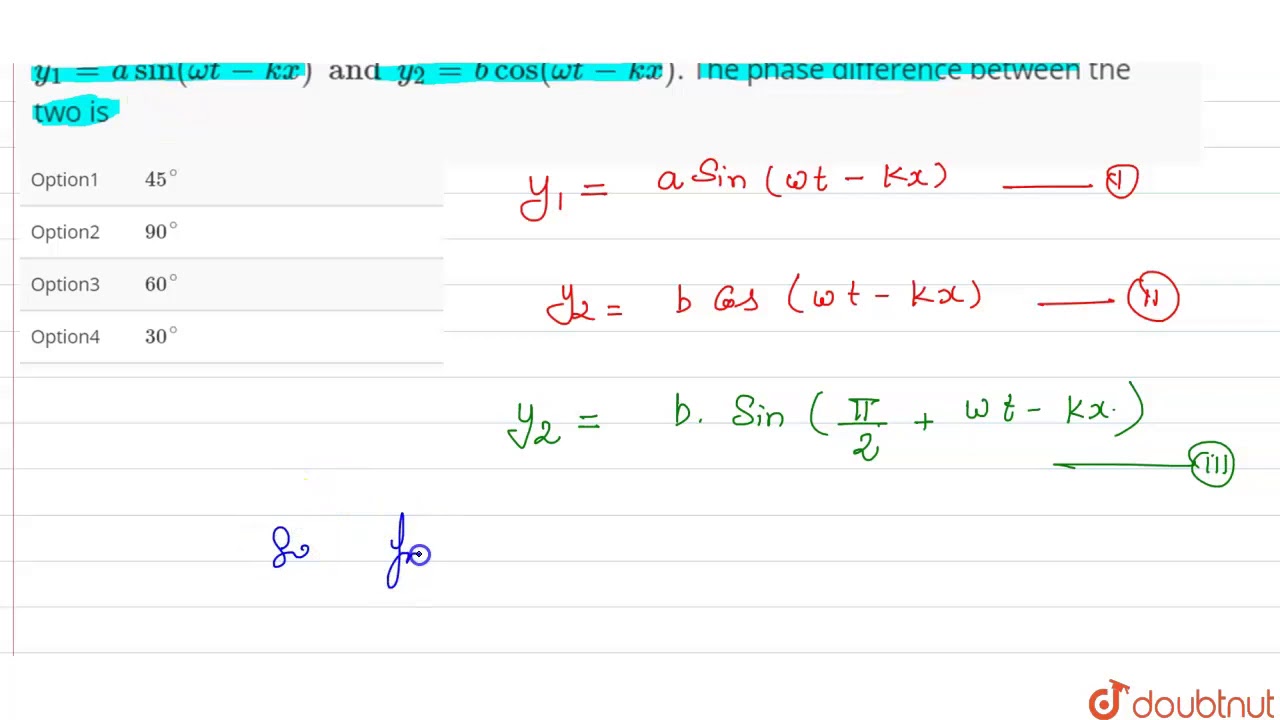 y₁ = a sin(ωt − kx) and y₂ = b cos(ωt − kx). The phase difference between the
two is
Option1 45°
Option2 90°
Option3 60°
Option4 30°
y₁ = a Sin (ωt − kx) —— (I)
y₂ = b Cos (ωt − kx) —— (II)
y₂ = b. Sin (π/2 + ωt − kx.)
(III)
So
doubtnut